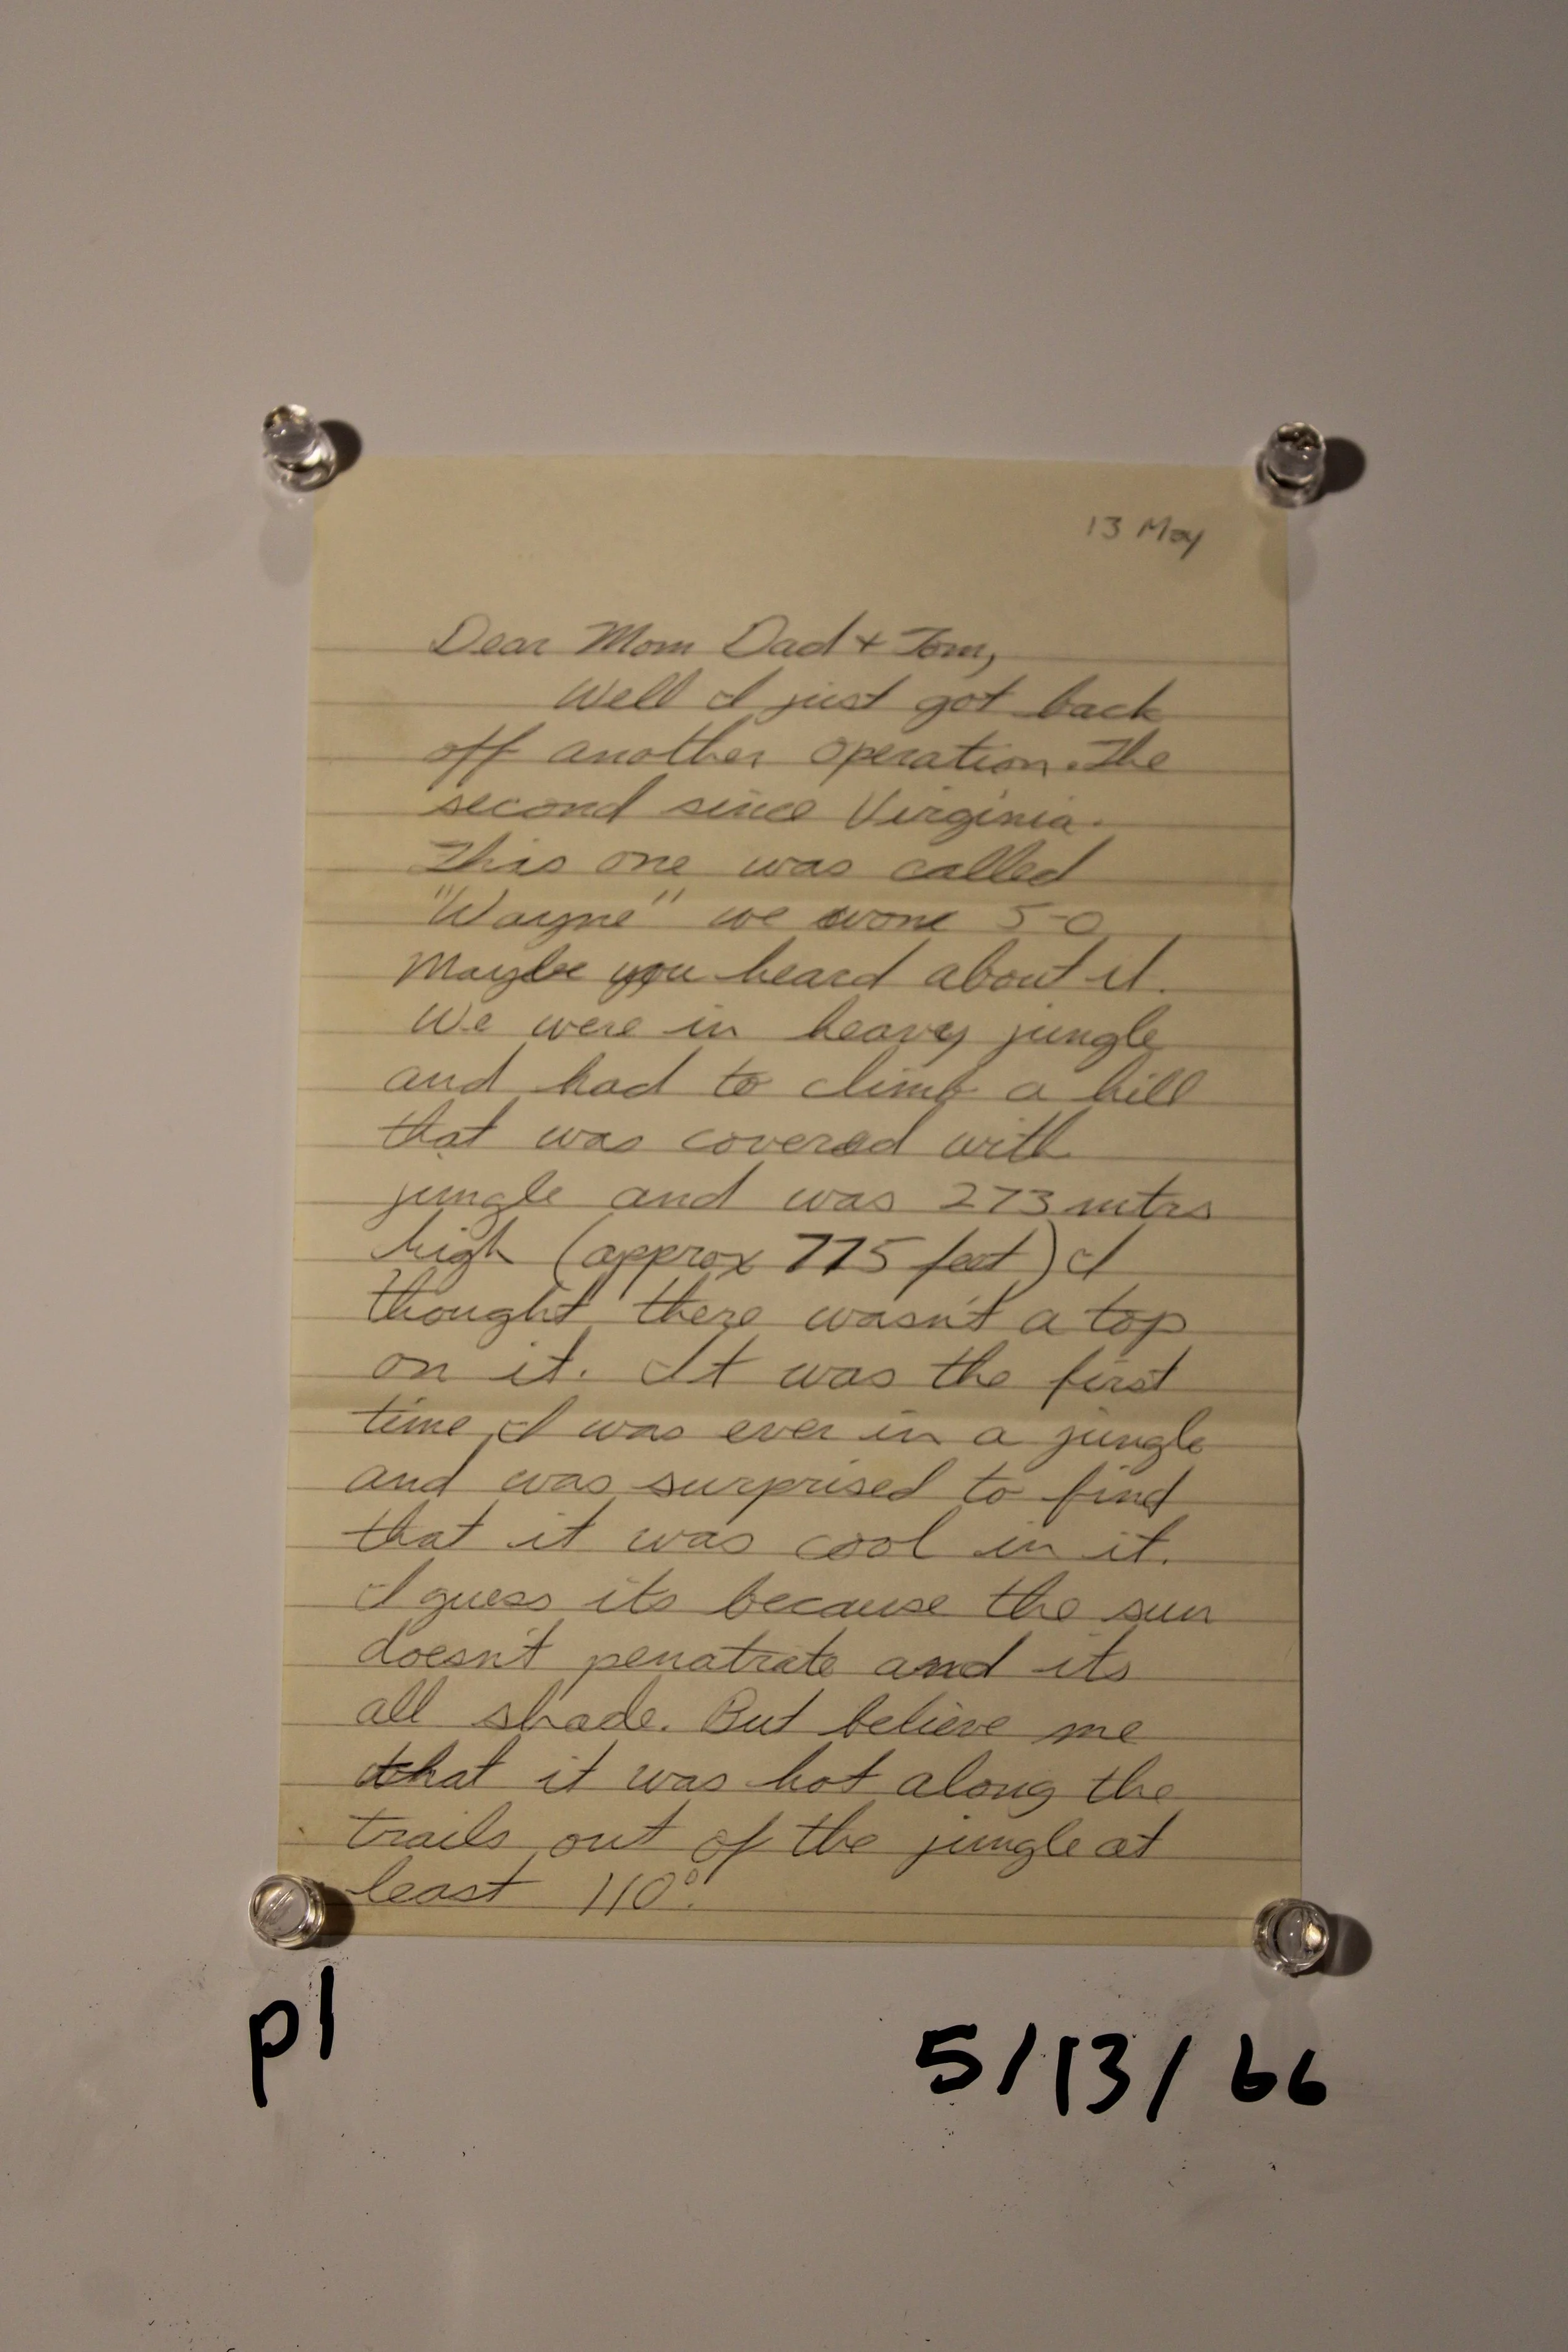 13 May
Dear Mom Dad + Tom,
Well I just got back
off another operation. The
second since Virginia.
This one was called
"Wayne" we wone 5-0
Maybe you heard about it.
We were in heavy jungle
and had to climb a hill
that was covered with
jungle and was 273 mtrs
high (approx 775 feet) I
thought there wasn't a top
on it. It was the first
time I was ever in a jungle
and was surprised to find
that it was cool in it.
I guess its because the sun
doesn't penatrate and its
all shade. But believe me
that it was hot along the
trails out of the jungle at
least 110°.
p1
5/13/66